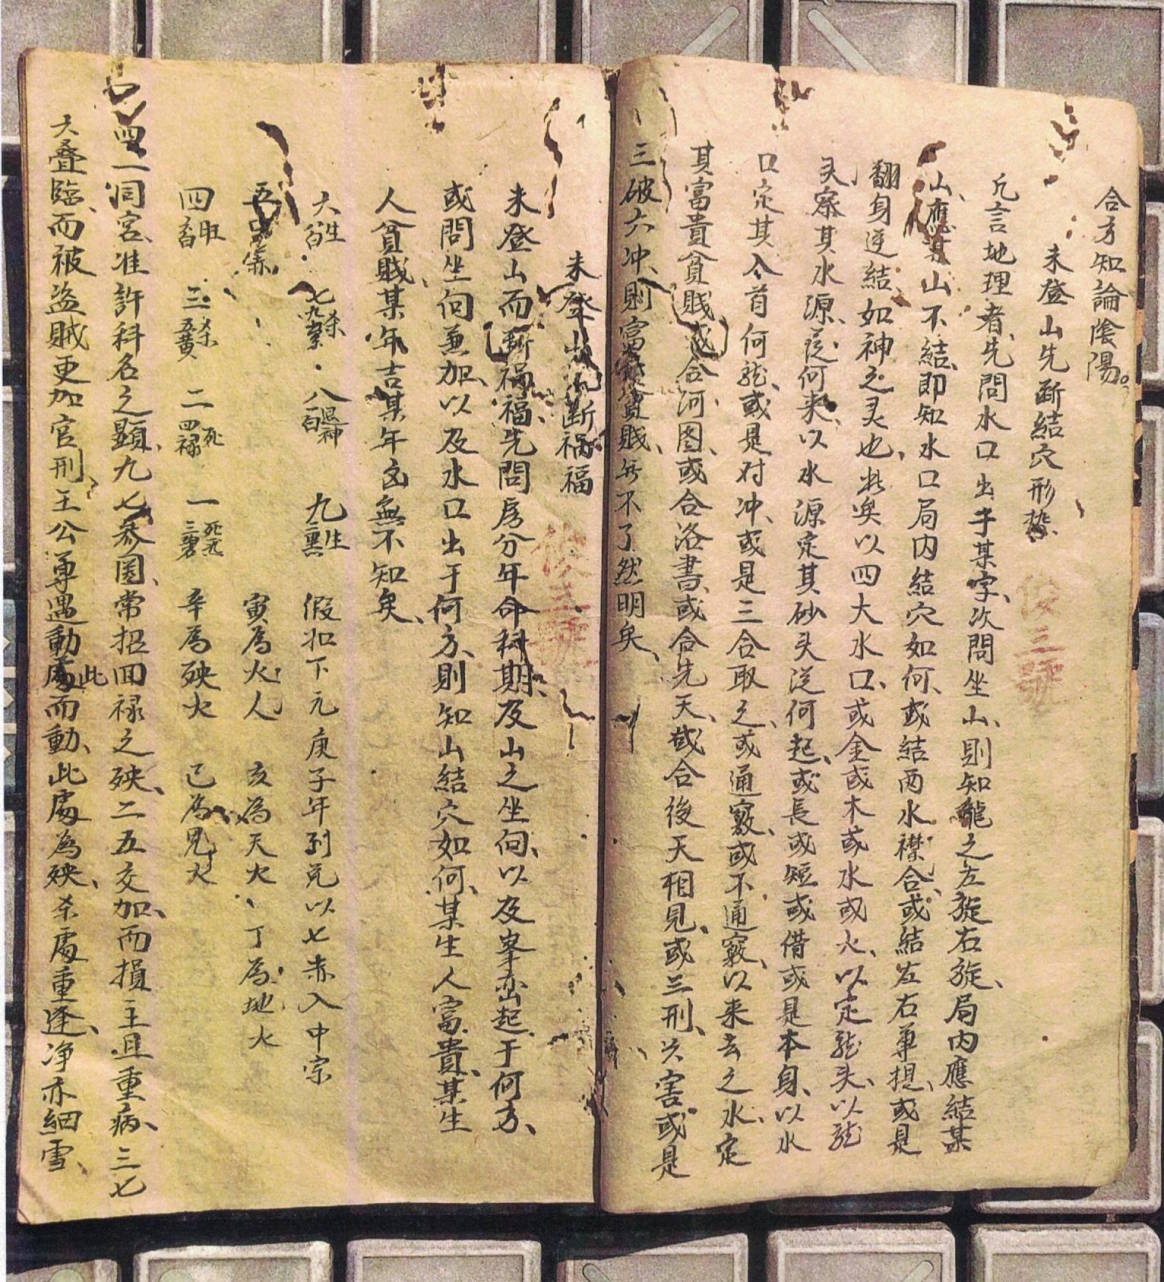 合方知論陰陽。
未登山先断結穴形势
凡言地理者、先問水口出于某字、次問坐山、則知龍之左旋右旋、局内應結某
山、應某山不結、即知水口局内結穴如何、或結两水襟合、或結左右单提、或是
翻身逆結、如神之灵也、然以四大水口、或金或木或水或火、以定龙头、以龙
头察其水源、従何来、以水源定其砂头従何起、或長或短或借或是本身、以水
口定其入首何龙、或是对冲、或是三合取之、或通竅、或不通竅、以来去之水、定
其富貴貧賤、或合河图、或合洛書、或合先天、或合後天相見、或三刑、六害、或是
三破六冲、則富貴貧賤、無不了然明矣、
未登山先断禍福
未登山而断禍福、先問房分年命科期、及山之坐向、以及峯峦起于何方、
或問坐向兼加、以及水口出于何方、則知山結穴如何、某生人富貴、某生
人貧賤、某年吉某年凶、無不知矣、
六生白 七杀九紫 八退神白 九生黑 假如下元庚子年到兑以七赤入中宗
寅為火人 亥為天火 丁為地火
四旺 三杀五黄 二死四禄 一死炁三碧 辛為殃火 己為鬼火
四一同宫、准許科名之顕、九七叅圖、常招回禄之殃、二五交加、而損主且重病、三七
大叠臨、而被盗賊更加官刑、王公尊遇動處此而動、此處為殃、杀處重逢、净亦細雪、